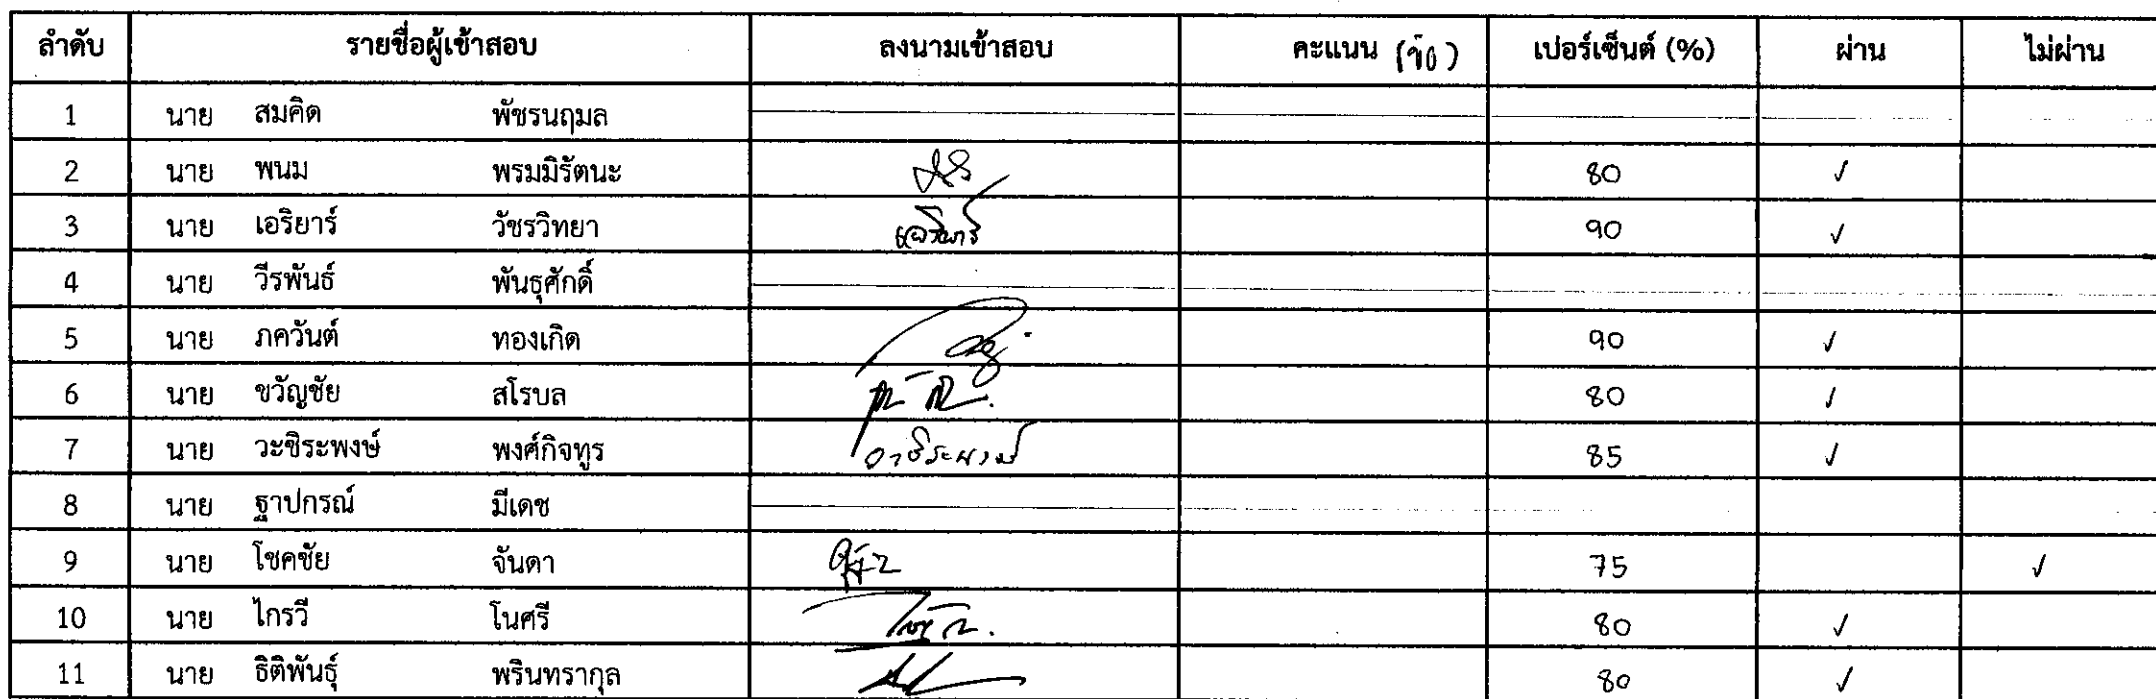 ลำดับ รายชื่อผู้เข้าสอบ ลงนามเข้าสอบ คะแนน (ข้อ) เปอร์เซ็นต์ (%) ผ่าน ไม่ผ่าน
1 นาย สมคิด พัชรนฤมล
2 นาย พนม พรมมิรัตนะ 80 ✓
3 นาย เอริยาร์ วัชรวิทยา เอริยาร์ 90 ✓
4 นาย วีรพันธ์ พันธุศักดิ์
5 นาย ภควันต์ ทองเกิด 90 ✓
6 นาย ขวัญชัย สโรบล 80 ✓
7 นาย วะชิระพงษ์ พงศ์กิจทูร วะชิระพงษ์ 85 ✓
8 นาย ฐาปกรณ์ มีเดช
9 นาย โชคชัย จันดา 75 ✓
10 นาย ไกรวี โนศรี 80 ✓
11 นาย ธิติพันธุ์ พรินทรากุล 80 ✓